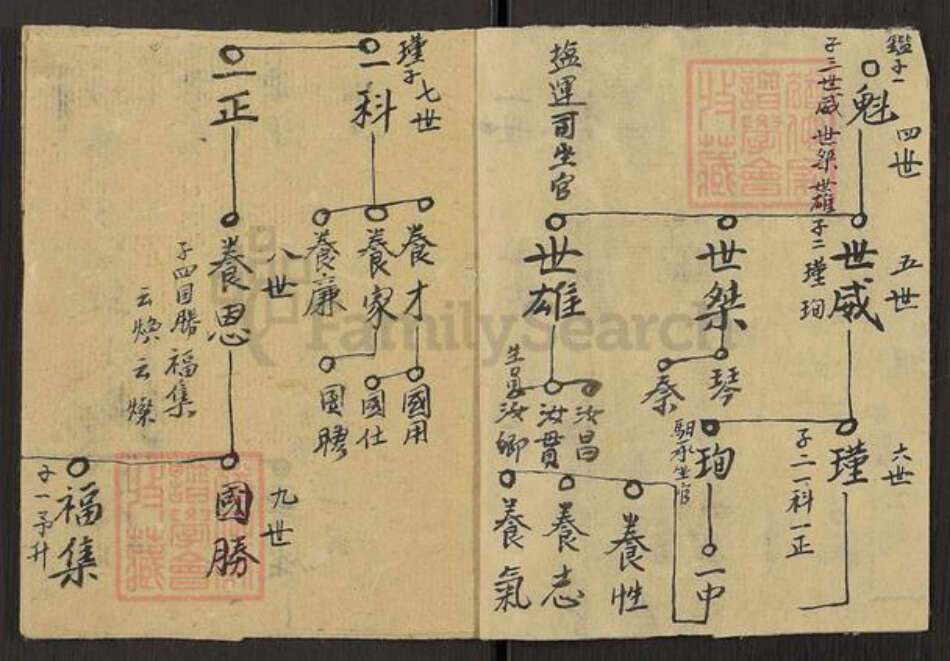 鑑子一
魁
四世
子三世威世桀世雄
世威
五世
子二瑾珣
世桀
世雄
塩運司生官
瑾
六世
子二一科一正
琴
秦
珣
一中
汝昌
汝貫
汝卿
養性
養志
養氣
瑾子七世
一科
一正
養才
養家
養廉
八世
養思
子四國勝福集
云煥云燦
國用
國仕
國聘
九世
國勝
福集
子一予升
FamilySearch